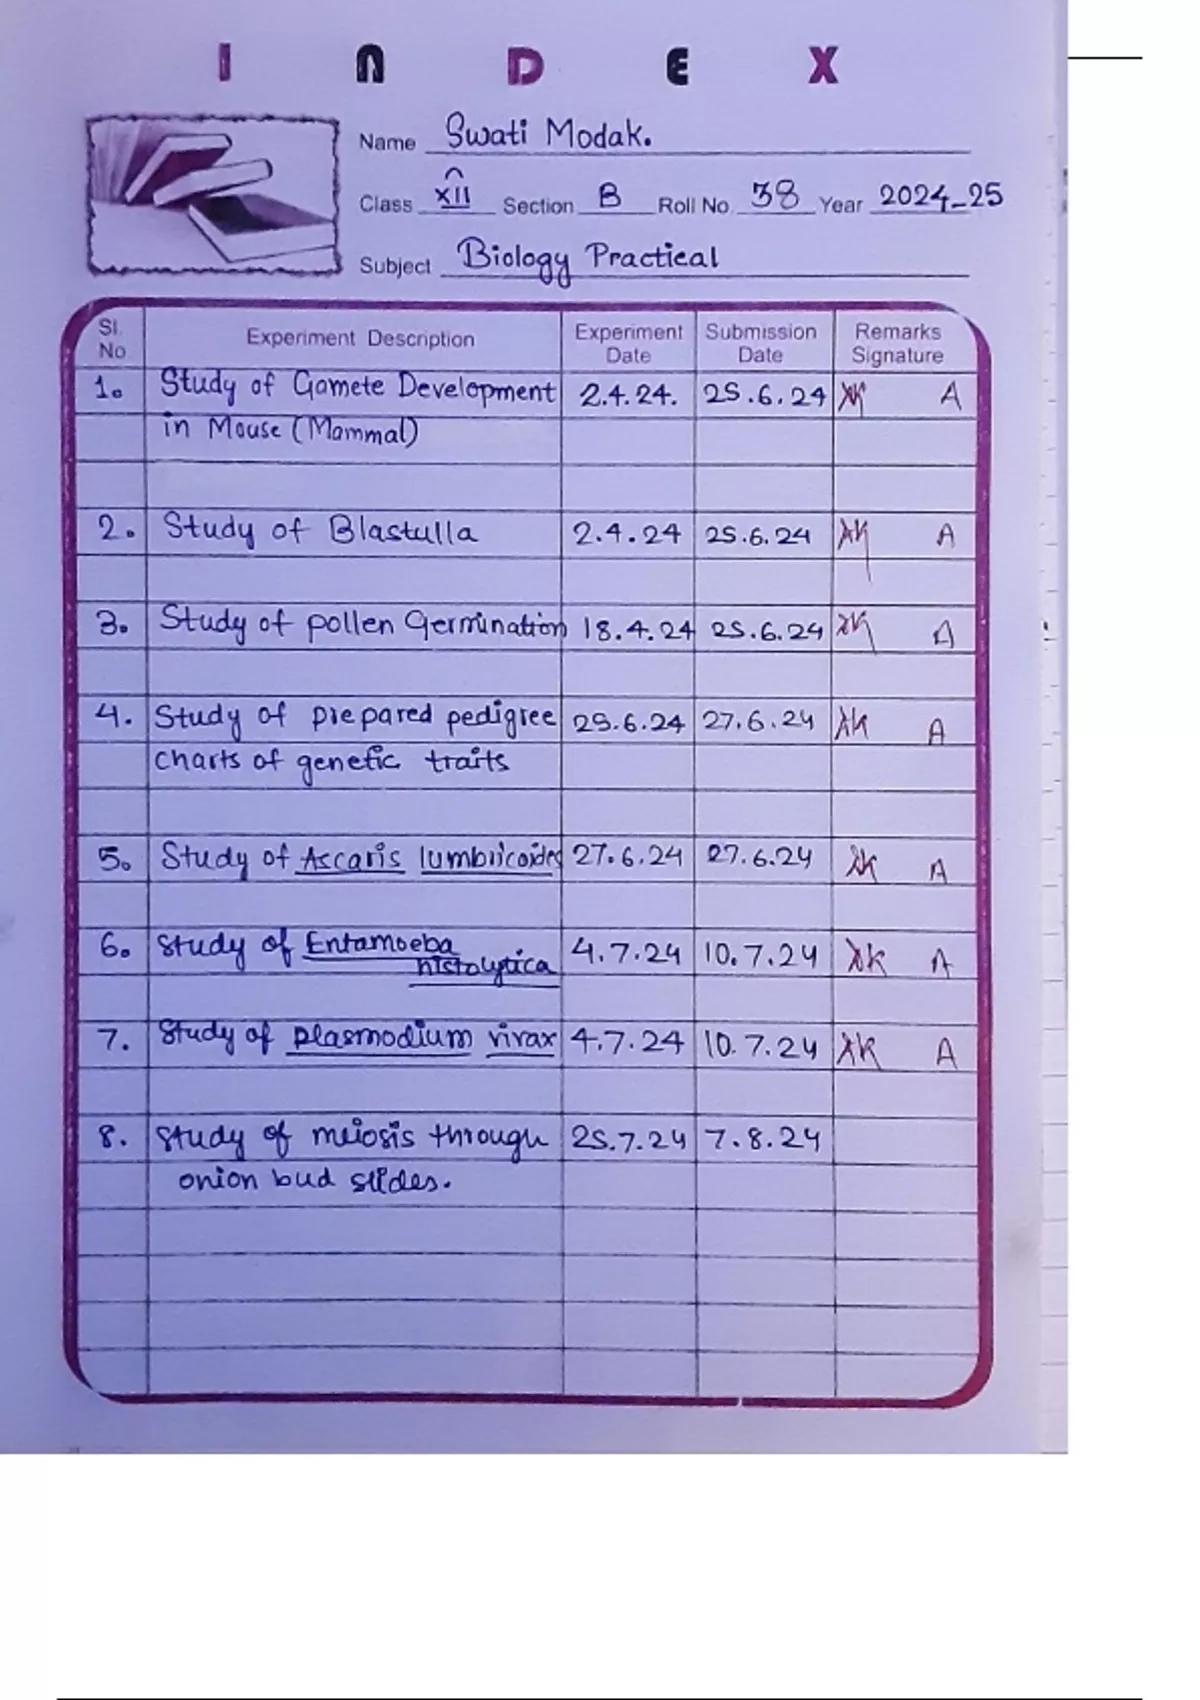 INDEX
Name Swati Modak.
Class XII Section B Roll No. 38 Year 2024-25
Subject Biology Practical
Sl. No Experiment Description Experiment Date Submission Date Remarks Signature
1. Study of Gamete Development 2.4.24. 25.6.24 A
in Mouse (Mammal)
2. Study of Blastulla 2.4.24 25.6.24 A
3. Study of pollen Germination 18.4.24 25.6.24 A
4. Study of prepared pedigree 25.6.24 27.6.24 A
charts of genetic traits
5. Study of Ascaris lumbricoides 27.6.24 27.6.24 A
6. Study of Entamoeba 4.7.24 10.7.24 A
histolytica
7. Study of plasmodium vivax 4.7.24 10.7.24 A
8. Study of meiosis through 25.7.24 7.8.24
onion bud slides.